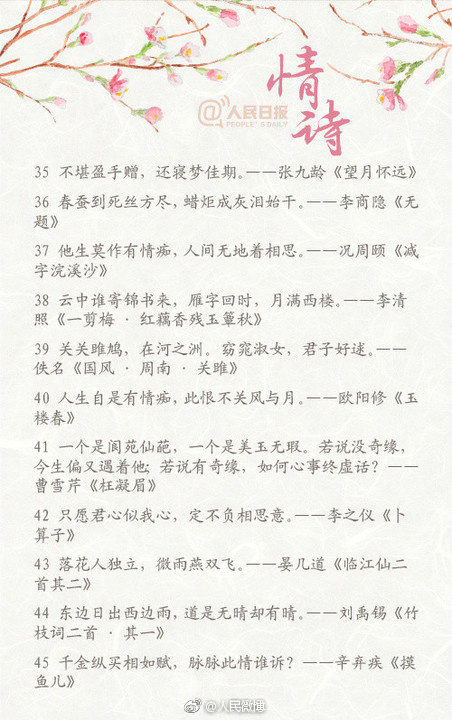 情诗
@人民日报
PEOPLE'S DAILY
35 不堪盈手赠，还寝梦佳期。——张九龄《望月怀远》
36 春蚕到死丝方尽，蜡炬成灰泪始干。——李商隐《无
题》
37 他生莫作有情痴，人间无地着相思。——况周颐《减
字浣溪沙》
38 云中谁寄锦书来，雁字回时，月满西楼。——李清
照《一剪梅 · 红藕香残玉簟秋》
39 关关雎鸠，在河之洲。窈窕淑女，君子好逑。——
佚名《国风 · 周南 · 关雎》
40 人生自是有情痴，此恨不关风与月。——欧阳修《玉
楼春》
41 一个是阆苑仙葩，一个是美玉无瑕。若说没奇缘，
今生偏又遇着他；若说有奇缘，如何心事终虚话？——
曹雪芹《枉凝眉》
42 只愿君心似我心，定不负相思意。——李之仪《卜
算子》
43 落花人独立，微雨燕双飞。——晏几道《临江仙二
首其二》
44 东边日出西边雨，道是无晴却有晴。——刘禹锡《竹
枝词二首 · 其一》
45 千金纵买相如赋，脉脉此情谁诉？——辛弃疾《摸
鱼儿》
@人民微博